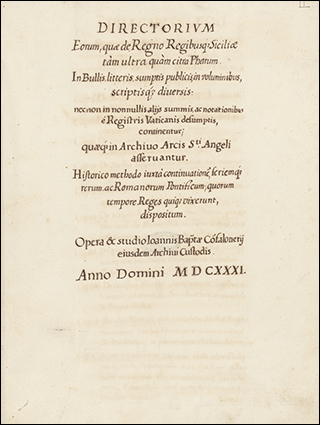 DIRECTORIVM
Eorum, quæ de Regno Regibusq; Siciliæ
tàm ultra quàm citra Pharum.
In Bullis, litteris, sumptis publicis, in voluminibus,
scriptisq; diversis:
necnon in nonnullis alijs summis, ac notationibus
è Registris Vaticanis desumptis,
continentur;
quæq; in Archiuo Arcis S.ti Angeli
asseruantur.
Historico methodo iuxtà continuationẽ, seriemq;
rerum, ac Romanorum Pontificum; quorum
tempore Reges quiq; vixerunt,
dispositum.
Opera & studio Ioannis Bap.tæ Cõfalonerij
eiusdem Archiui Custodis
Anno Domini M D CXXXI.